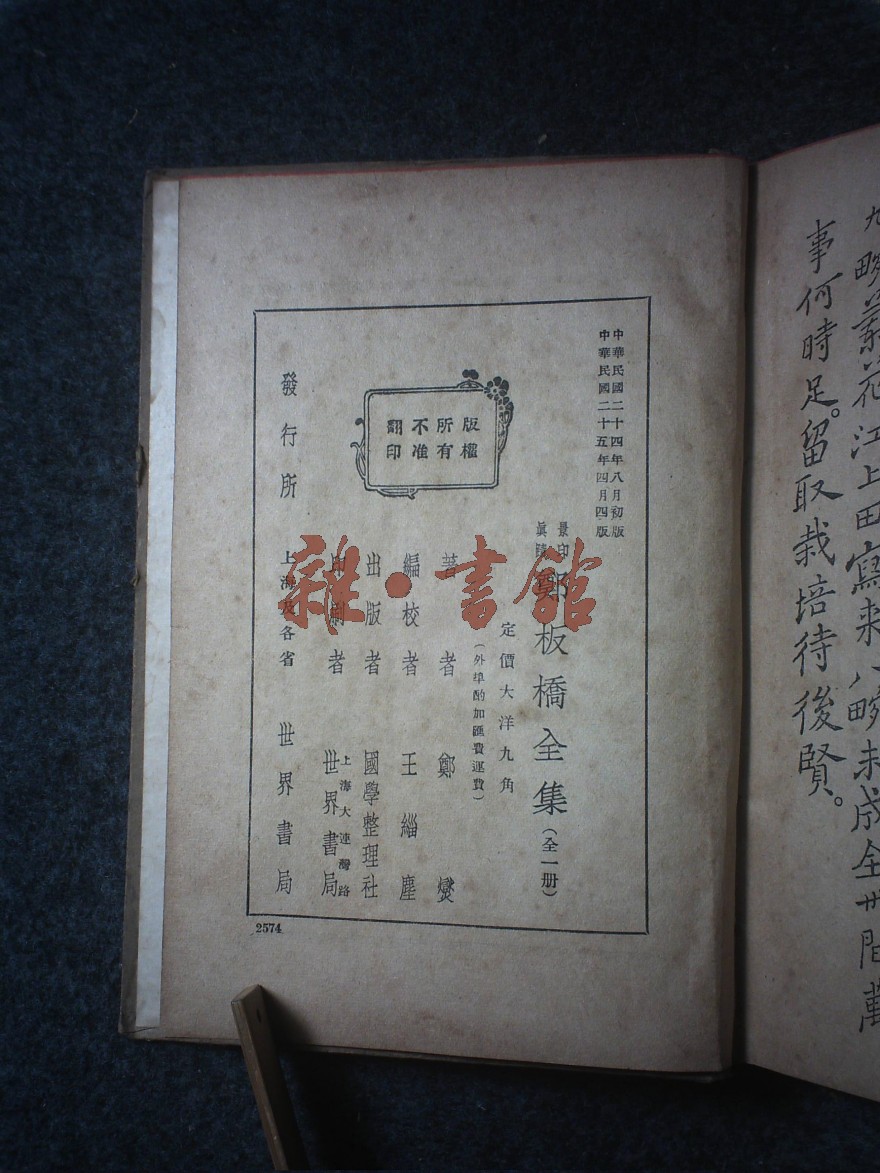 九畹蘭花江上田寫來八畹未成全世間萬
事何時足。留取栽培待後賢。
中華民國二十四年八月初版
中華民國二十五年四月四版
景印
鄭板橋全集(全一册)
定價大洋九角
(外埠酌加匯費運費)
版權
所有
不准
翻印
著者 鄭燮
編校者 王緇塵
出版者 國學整理社
印刷者 上海大連灣路
世界書局
發行所 上海及各省 世界書局
2574
雜·書館